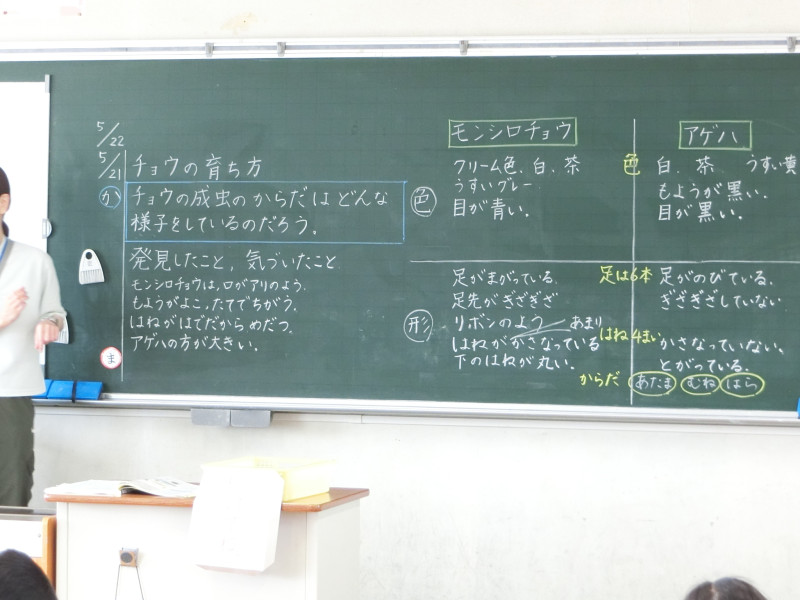 5/22
5/21 チョウの育ち方
か チョウの成虫のからだはどんな
様子をしているのだろう。
発見したこと、気づいたこと
モンシロチョウは、口がアリのよう。
もようがよこ、たてでちがう。
はねがはでだから めだつ。
アゲハの方が大きい。
主
モンシロチョウ
色
クリーム色、白、茶
うすいグレー
目が青い。
形
足がまがっている。
足先がぎざぎざ
リボンのよう あまり
はねがかさなっている
下のはねが丸い。
アゲハ
色
白、茶 うすい黄
もようが黒い。
目が黒い。
足は6本 足がのびている。
ぎざぎざしていない
はね4まい かさなっていない。
とがっている。
からだ あたま むね はら
主